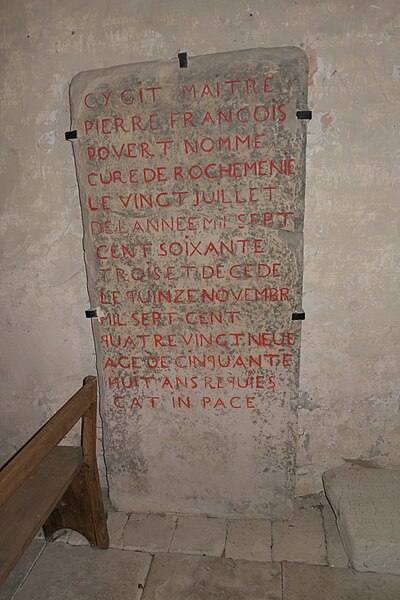 CY GIT MAITRE
PIERRE FRANCOIS
POVERT NOMME
CURE DE ROCHEMENIE
LE VINGT JUILLET
DE L ANNEE MIL SEPT
CENT SOIXANTE
TROIS ET DECEDE
LE QUINZE NOVEMBR
MIL SEPT CENT
QUATRE VINGT NEUF
AGE DE CINQUANTE
HUIT ANS REQUIES
CAT IN PACE